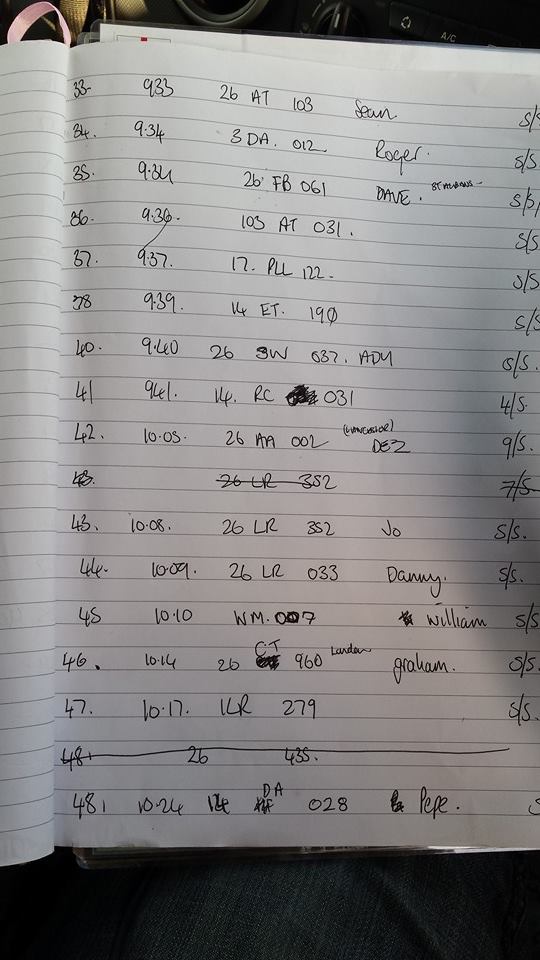 33- 933 26 AT 103 Sean S/S
34. 9.34 3 DA. 012 Roger. S/S
35. 9.34 26 FB 061 DAVE. ST ALBANS - S/S
36. 9.36. 103 AT 031. S/S
37. 9.37. 17. PLL 122. S/S
38 9.39. 14 ET. 190 S/S
40. 9.40 26 SW 037. ADY S/S.
41 941. 14. RC 031 4/S.
42. 10.05. 26 AA 002 DEZ 9/S.
43. 26 LR 352 7/S
43. 10.08. 26 LR 352 Jo S/S.
44. 10.09. 26 LR 033 Danny. S/S.
45 10.10 WM. 007 William S/S
46. 10.14 26 CT 960 London graham. S/S.
47. 10.17. 1LR 279 S/S.
48. 26 435.
48. 10.24 14 DA 028 Pepe. S